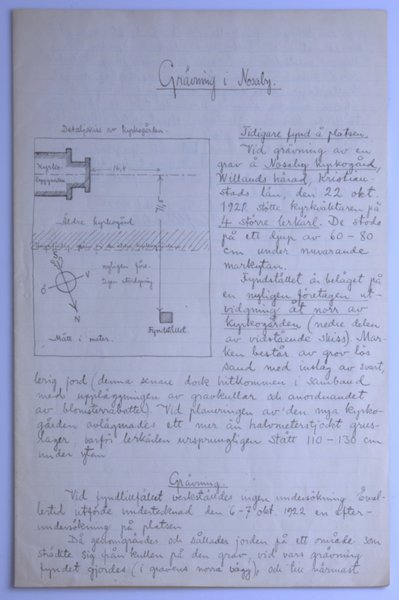 Grävning i Nosaby.
Detaljskiss av kyrkogården.
Kyrko-
byggnaden
16,8
71,5
Äldre kyrkogård
nyligen före-
tagen utvidgning
S
V
Ö
N
Fyndstället
Mått i meter.
Tidigare fynd å platsen.
Vid grävning av en
grav å Nosaby kyrkogård,
Willands härad, Kristian-
stads län, den 22 okt.
1921 stötte kyrkväktaren på
4 större lerkärl. De stods
på ett djup av 60-80
cm under nuvarande
markytan.
Fyndstället är beläget på
en nyligen företagen ut-
vidgning åt norr av
kyrkogården (nedre delen
av vidstående skiss). Mar-
ken består av grov lös
sand med inslag av svart,
lerig jord (denna senare dock hitkommen i samband
med uppläggningen av gravkullar och anordnandet
av blomsterrabatter). Vid planeringen av den nya kyrko-
gården avlägsnades ett mer än halvmetertjockt grus-
lager, varför lerkärlen ursprungligen stått 110-130 cm
under ytan.
Grävning.
Vid fyndtillfället verkställdes ingen undersökning.
utförde undertecknad den 6-7 okt. 1922 en efter-
undersökning på platsen.
Då genomgrävdes och sållades jorden på ett område som
sträckte sig från kullen på den grav, vid vars grävning
fyndet gjordes (i gravens norra vägg), och till närmast